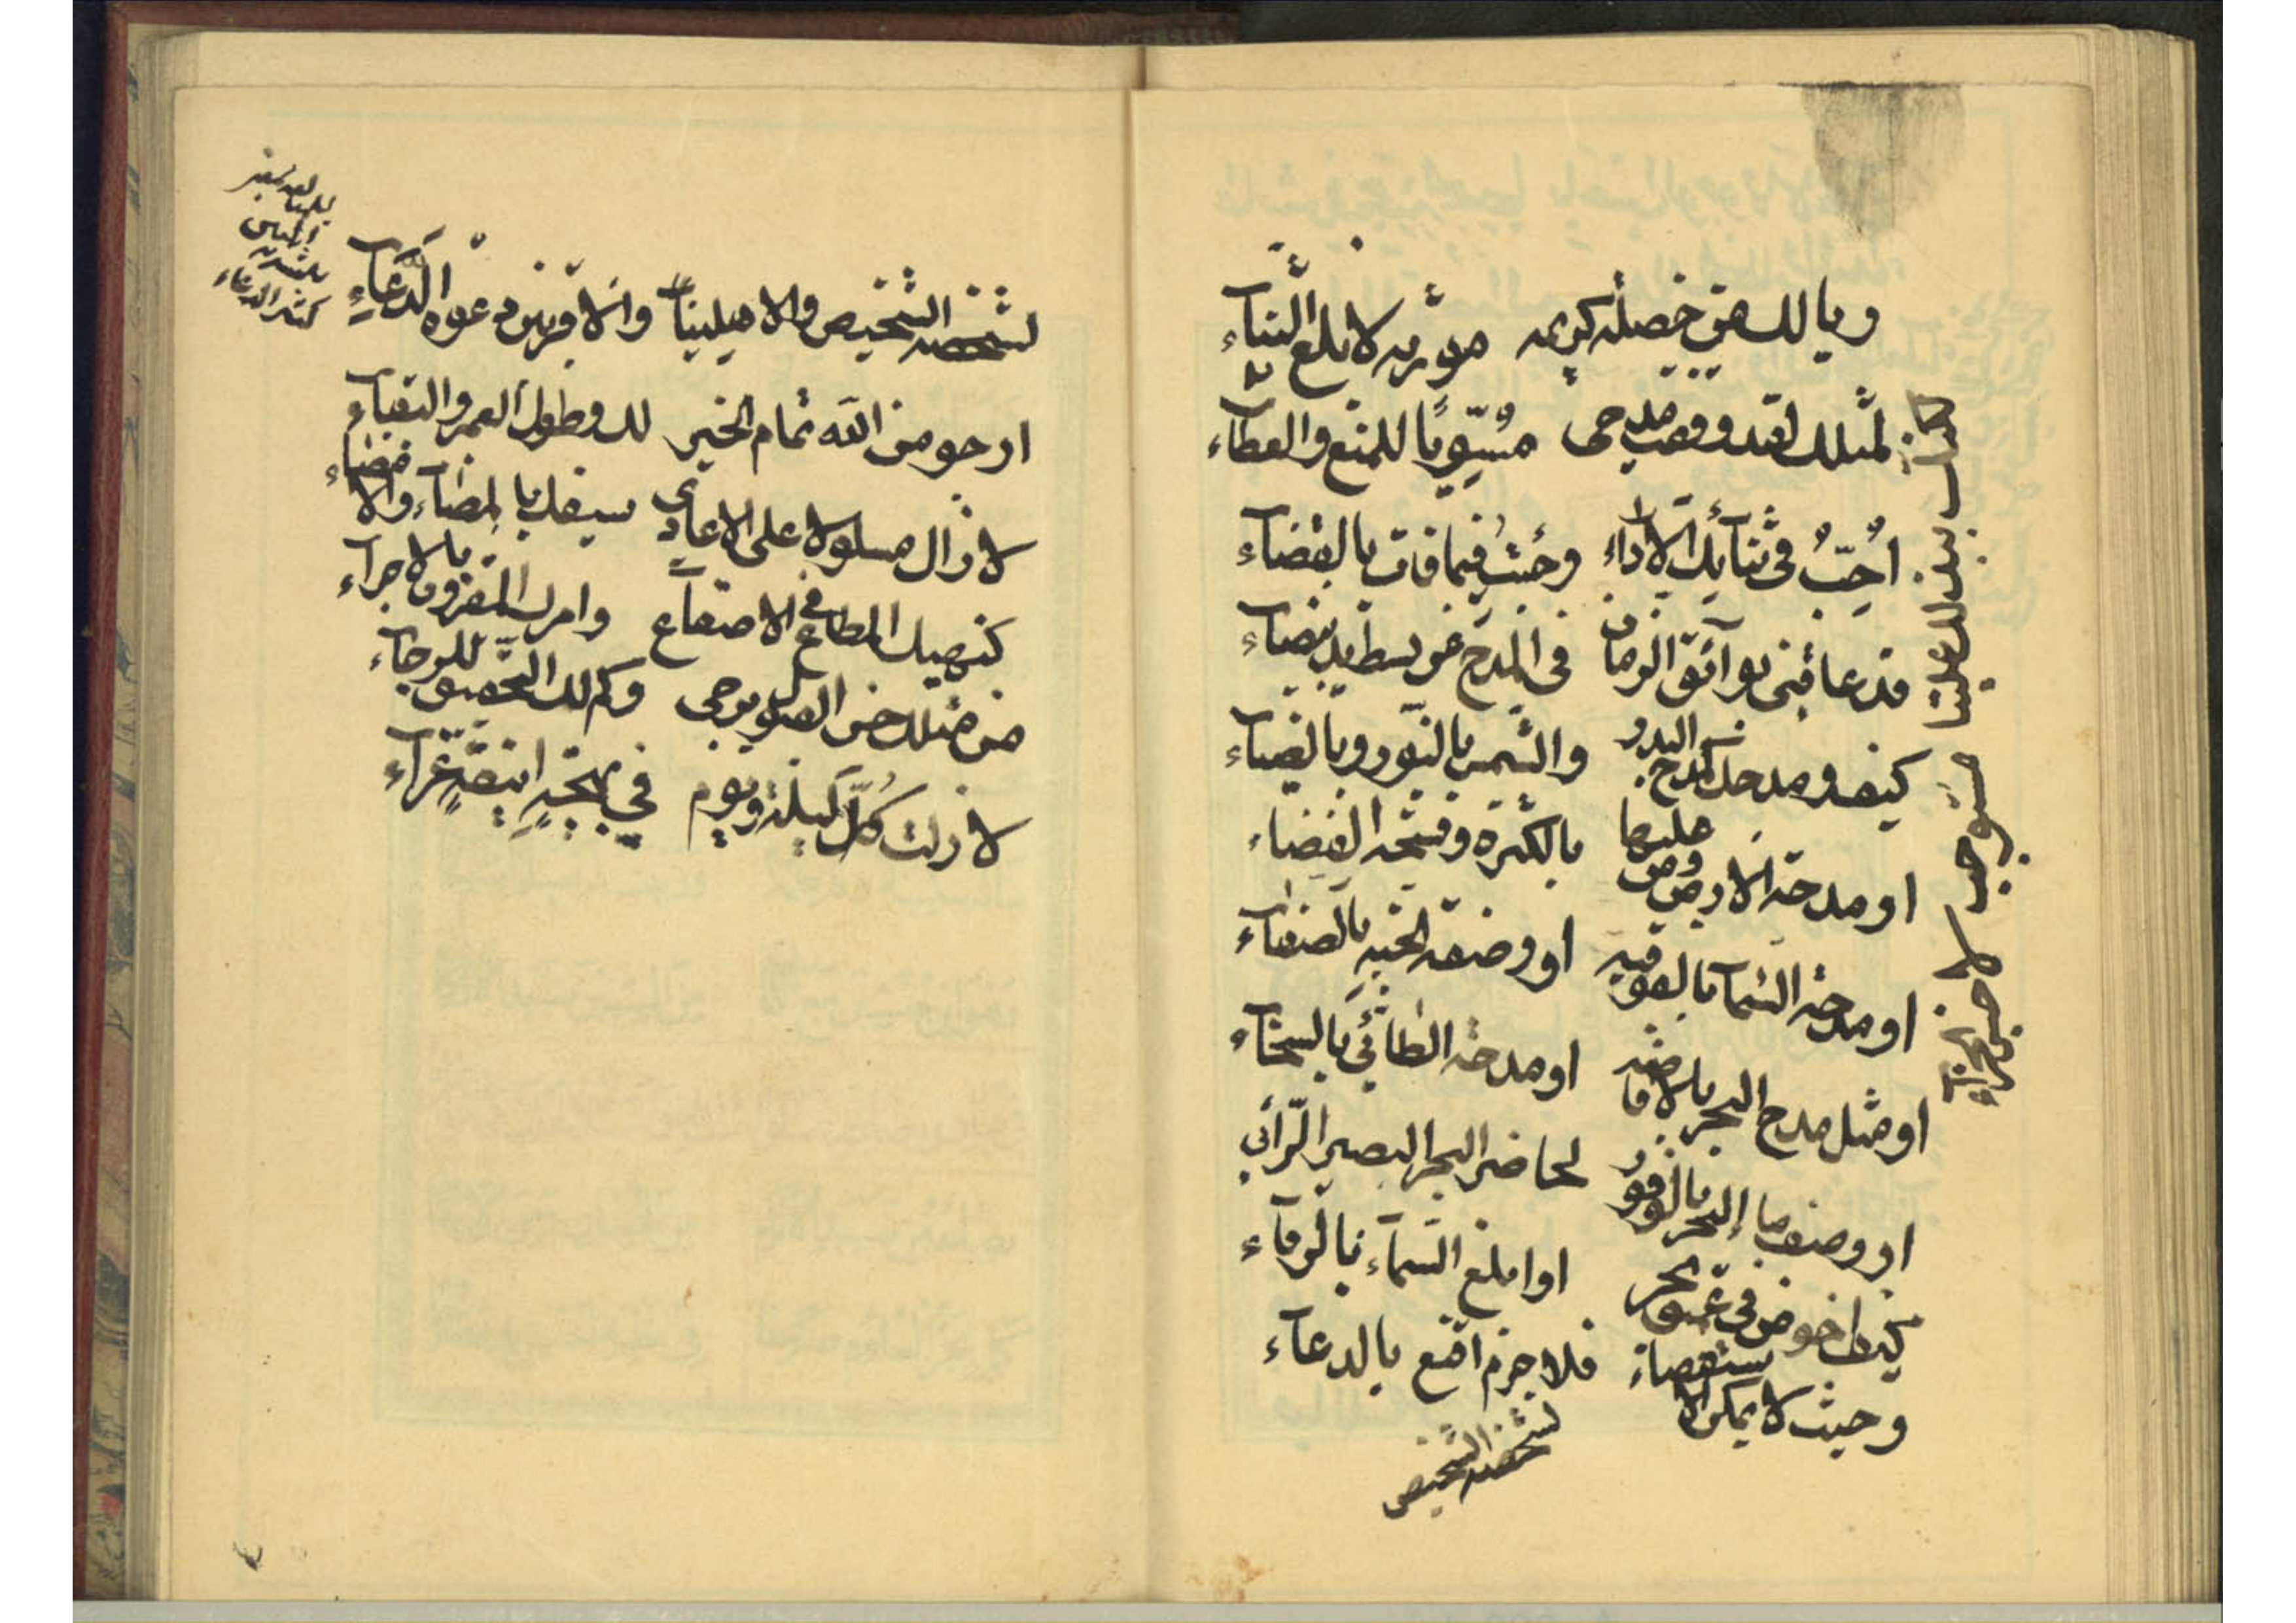 ويا لك من خصلة كريمه مؤثرة لا بلغ الثناء
لمثلك لقد ووقف مدحى مسّويًا للمنع والعطاء
أحبّ في ثنائك الأداء وخبت فيما فات بالقضاء
قد عاقنى بوائق الزمان في المدح عن بسط يد بيضاء
كيف ومدحك كمدح البدر والشمس بالنور وبالضياء
او مدحة الارض ومن عليها بالكثرة وفسحة الفضاء
او مدحة السماء بالفوقيه او وصفه الخيه بالصفاء
او مثل مدح البحر بالافاضه او مدحة الطائي بالسخاء
او وصف ما البحر بالوفور لحاضر البحر البصير الرائي
كيف اخوض في عميق بحر او ابلغ السماء بالرقاء
وحيث لا يمكن الاستقصاء فلا جرم اقنع بالدعاء
لشخصه الشخيص
كذاك بذلك علينا مستوجب لاحسن الجزاء
لشخصه الشخيص والاهلينا والاقربين دعوة الدعاء
ارجو من الله تمام الخير لك وطول العمر والبقاء
لا زال مسلولا على الاعادى سيفك بالمضاء والامضاء
كنهيك المطاع في الاصقاع وامرك المقرون بالاجراء
من مثلك حسن القبول يرجى وكم لك التحقيق للرجاء
لا زلت كلّ ليلة ويوم في بهجة انيقة غرّاء